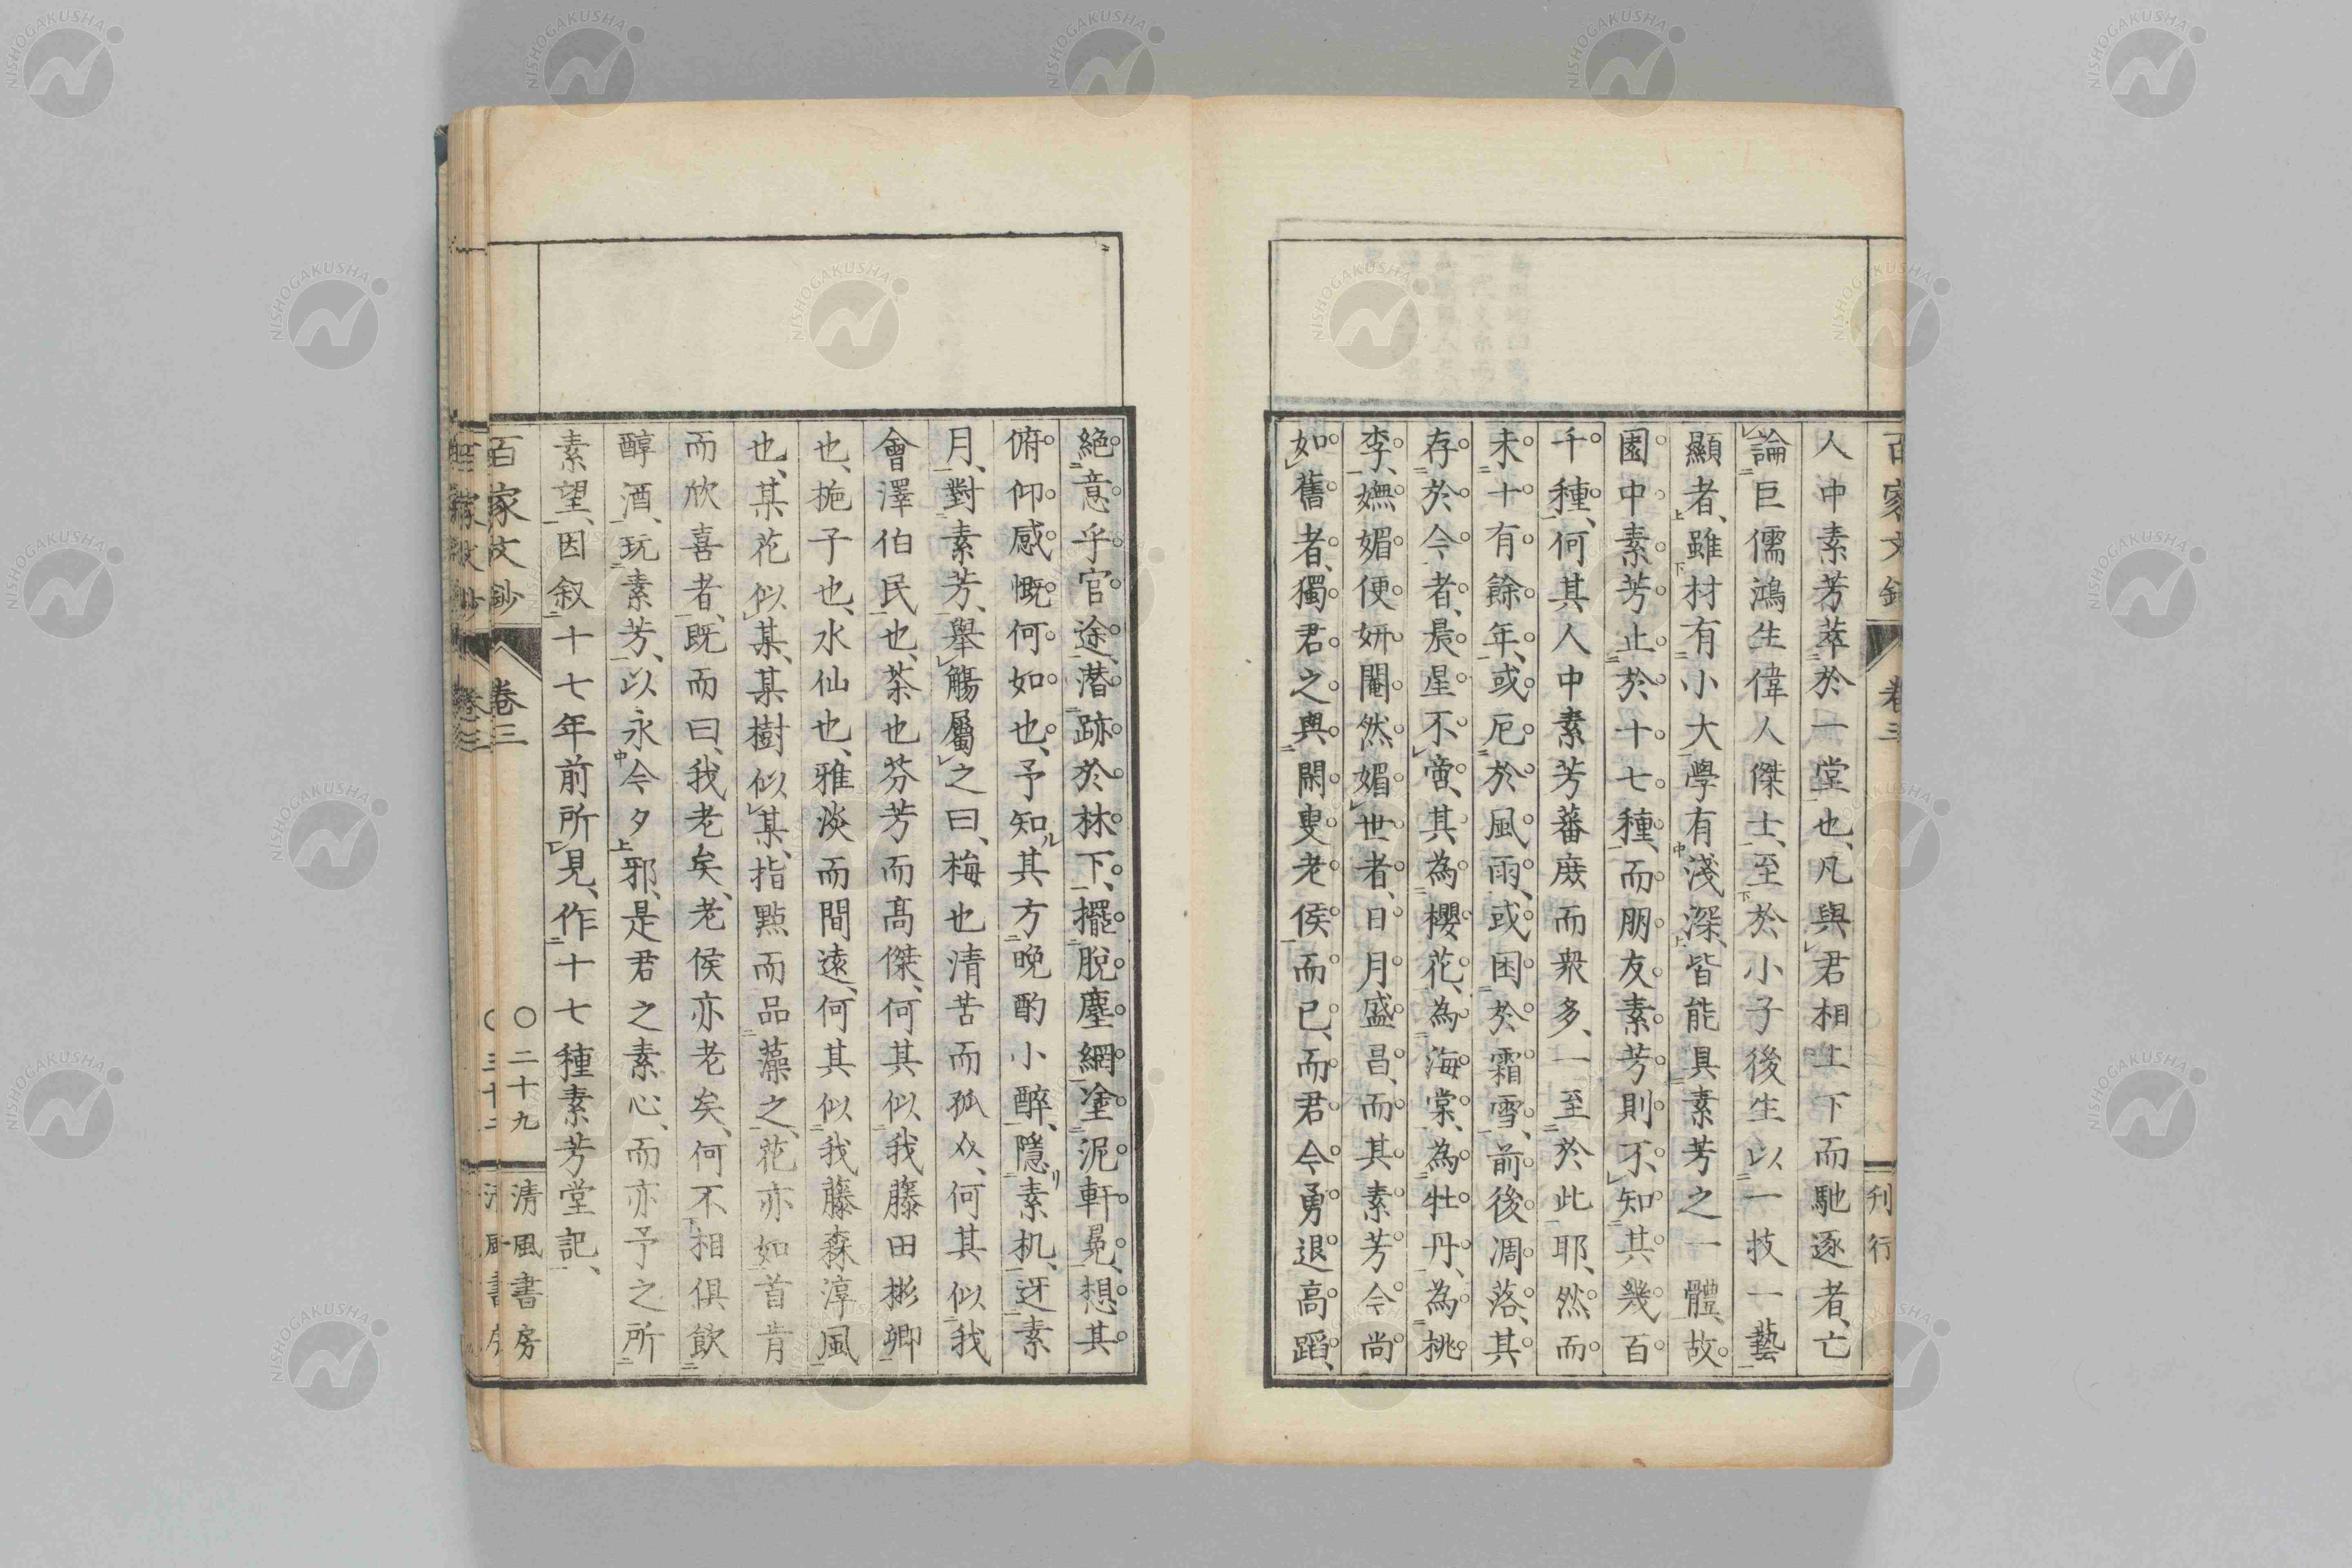 百家文鈔 卷三 刊行
人中素芳萃於一堂也、凡與君相上下而馳逐者、亡
論巨儒鴻生偉人傑士、至於小子後生以一技一藝
顯者、雖材有小大學有淺深、皆能具素芳之一體、故
園中素芳止於十七種、而朋友素芳則不知其幾百
千種、何其人中素芳蕃庶而衆多、一至於此耶、然而
未十有餘年、或厄於風雨、或困於霜雪、前後凋落、其
存於今者、晨星不啻、其為櫻花、為海棠、為牡丹、為桃
李、嫵媚便妍閹然媚世者、日月盛昌、而其素芳今尚
如舊者、獨君之與閑叟老侯而已、而君今勇退高蹈、
絕意乎官途、潛跡於林下、擺脫塵網塗泥軒冕、想其
俯仰感慨何如也、予知其方晚酌小醉、隱素机、迓素
月、對素芳、舉觴屬之曰、梅也清苦而孤必、何其似我
會澤伯民也、荼也芬芳而高傑、何其似我藤田彬卿
也、梔子也、水仙也、雅淡而間遠、何其似我藤森淳風
也、某花似某、某樹似某、指點而品藻之、花亦如首肯
而欣喜者、既而曰、我老矣、老侯亦老矣、何不相俱飲
醇酒、玩素芳、以永今夕邪、是君之素心、而亦予之所
素望、因叙十七年前所見、作十七種素芳堂記、
百家文鈔 卷三 ○二十九 清風書房